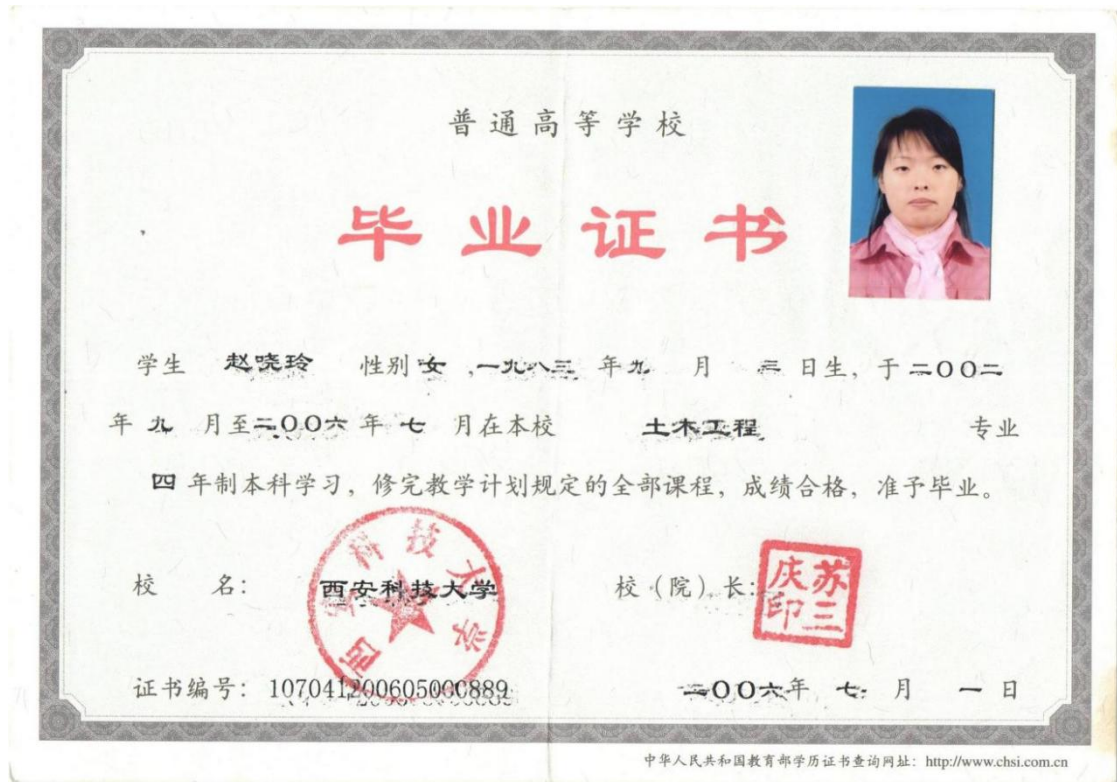 普通高等学校
毕业证书
学生 赵晓玲 性别 女 ,一九八三 年 九 月 三 日生, 于 二〇〇二
年 九 月至 二〇〇六 年 七 月在本校 土木工程 专业
四 年制本科学习, 修完教学计划规定的全部课程, 成绩合格, 准予毕业。
校 名: 西安科技大学 校 (院) 长:
西安科技大学
苏三庆印
证书编号: 107041200605000889 二〇〇六年 七 月 一 日
中华人民共和国教育部学历证书查询网址: http://www.chsi.com.cn